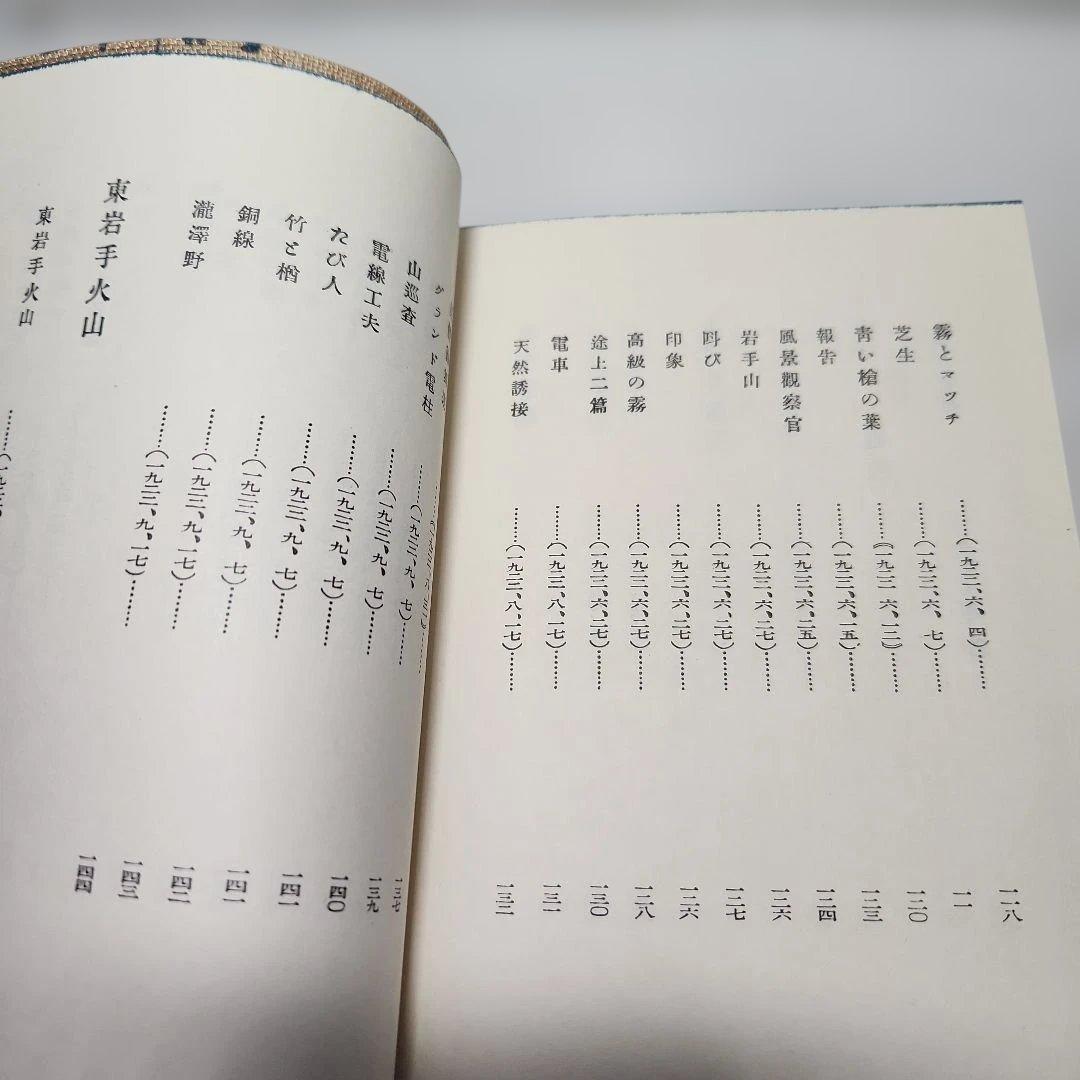 霧とマッチ………(一九二二、六、四)………一一八
芝生………(一九二二、六、七)………一一
靑い槍の葉………(一九二二、六、一二)………一二〇
報告………(一九二二、六、一五)………一二三
風景觀察官………(一九二二、六、二五)………一二四
岩手山………(一九二二、六、二七)………一二六
叫び………(一九二二、六、二七)………一二七
印象………(一九二二、六、二七)………一二六
高級の霧………(一九二二、六、二七)………一二八
途上二篇………(一九二二、六、二七)………一三〇
電車………(一九二二、八、一七)………一三一
天然誘接………(一九二二、八、一七)………一三二
グランド電柱………(一九二二、九、七)………一三七
山巡査………(一九二二、九、七)………一三九
電線工夫………(一九二二、九、七)………一四〇
たび人………(一九二二、九、七)………一四一
竹と楢………(一九二二、九、七)………一四一
銅線………(一九二二、九、一七)………一四二
瀧澤野………(一九二二、九、一七)………一四三
東岩手火山………一四四
東岩手火山………(一九二二、